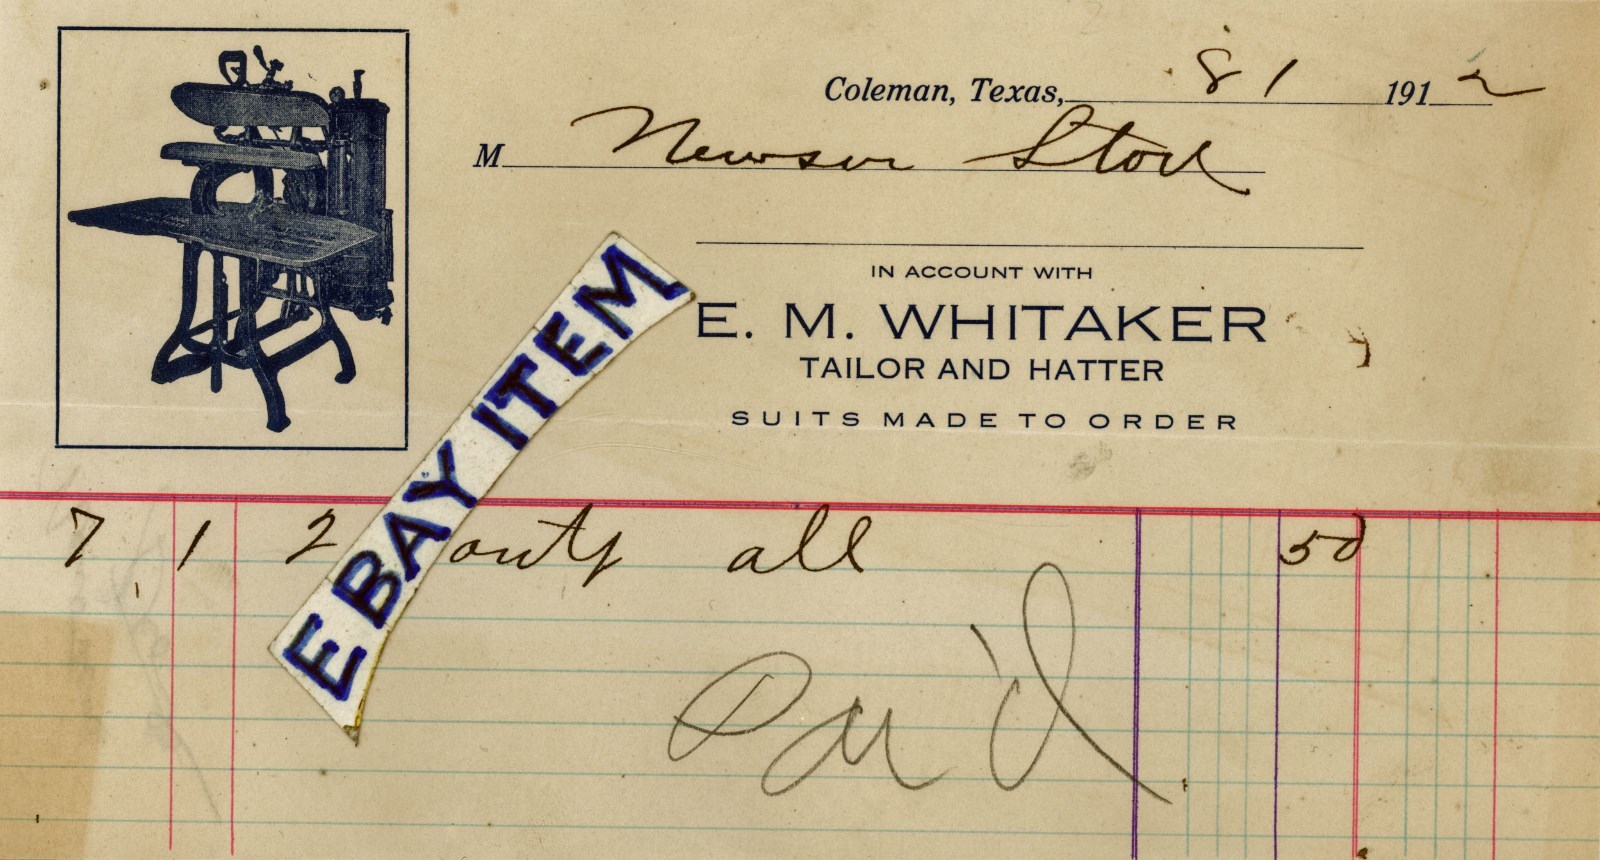 Coleman, Texas, 8 1 1912
M Newsom Store
IN ACCOUNT WITH
E. M. WHITAKER
TAILOR AND HATTER
SUITS MADE TO ORDER
EBAY ITEM
7 1 2 all 50
Paid